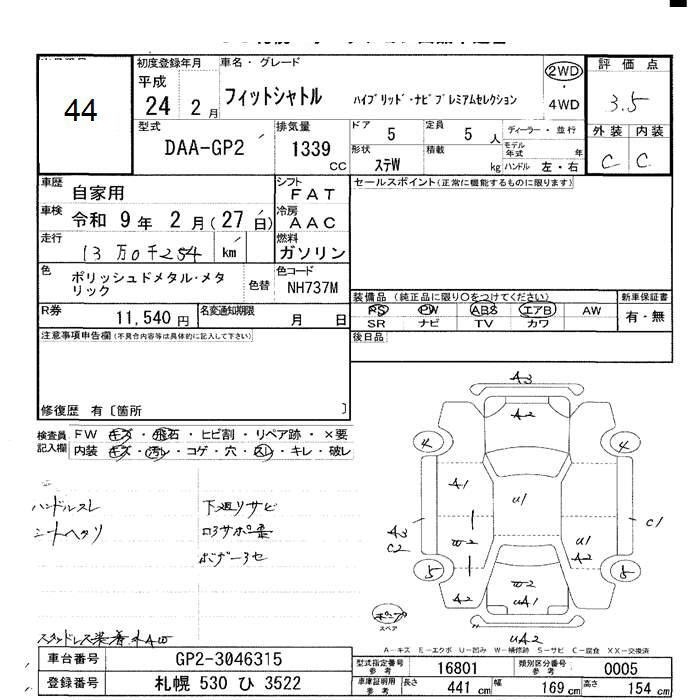 44
初度登録年月 車名・グレード
平成 24 年 2 月 フィットシャトル ハイブリッド・ナビプレミアムセレクション
2WD ・ 4WD
評価点
3.5
外装 内装
C C
型式 DAA-GP2 排気量 1339 CC
ドア 5 定員 5 人 ディーラー・並行
形状 ステW 積載 kg モデル年式 年
ハンドル 左・右
車歴 自家用 シフト FAT
車検 令和 9 年 2 月 ( 27 日) 冷房 AAC
走行 13万0千254 km 燃料 ガソリン
色 ポリッシュドメタル・メタリック 色替 色コード NH737M
R券 11,540 円 名変通知期限 月 日
セールスポイント(正常に機能するものに限ります)
装備品 (純正品に限り○をつけてください) 新車保証書
PS PW ABS エアB AW 有・無
SR ナビ TV カワ
後日品
注意事項申告欄 (不具合内容等は具体的に記入して下さい)
修復歴 有〔箇所 〕
検査員記入欄 FW キズ・飛石・ヒビ割・リペア跡・×要
内装 キズ・汚レ・コゲ・穴・スレ・キレ・破レ
ハンドルスレ 下廻りサビ
シートヘタリ
ボデー
A3
A2
4 4
A1
U1
A3
C2
C1
W2
U1
A2
5 5
A2
W2
UA1
UA2
スペア
スタッドレス装着
A-キズ E-エクボ U-凹み W-補修跡 S-サビ C-腐食 XX-交換済
車台番号 GP2-3046315
登録番号 札幌 530 ひ 3522
型式指定番号 参考 16801 類別区分番号 参考 0005
車庫証明用 参考 長さ 441 cm 幅 169 cm 高さ 154 cm